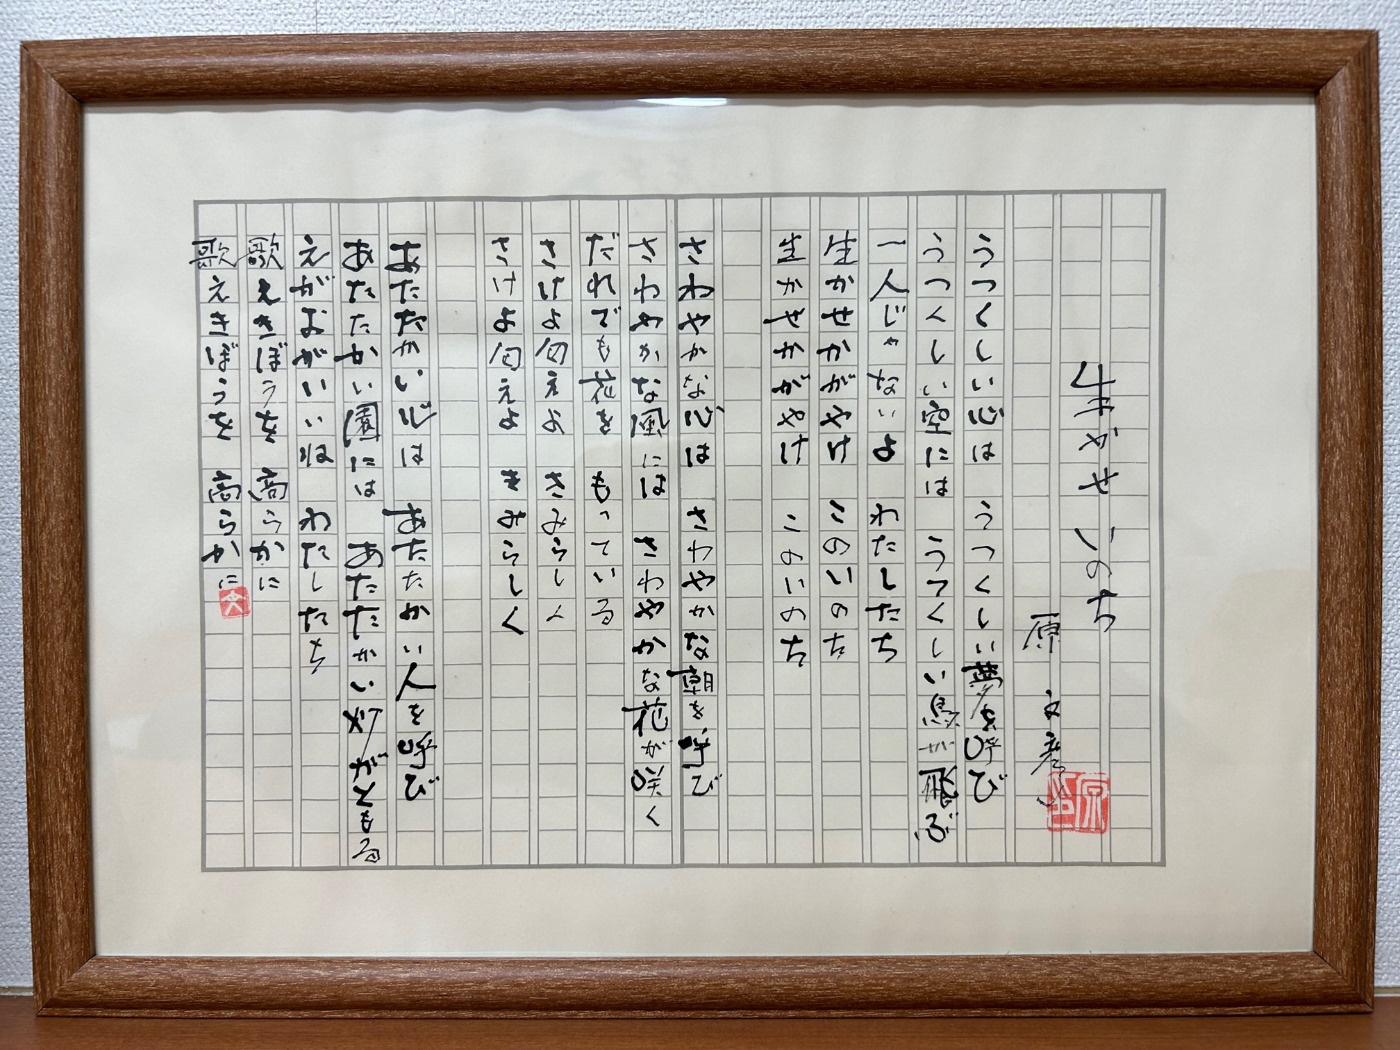 生かせ いのち
原 文彦
うつくしい心は うつくしい夢を呼び
うつくしい空には うつくしい鳥が飛ぶ
一人じゃないよ わたしたち
生かせかがやけ このいのち
生かせかがやけ このいのち
さわやかな心は さわやかな朝を呼び
さわやかな風には さわやかな花が咲く
だれでも花を もっている
さけよ匂えよ きみらしく
さけよ匂えよ きみらしく
あたたかい心は あたたかい人を呼び
あたたかい園には あたたかい灯がともる
えがおがいいね わたしたち
歌えきぼうを 高らかに
歌えきぼうを 高らかに